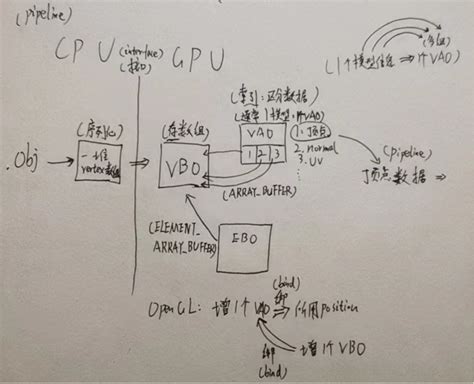 (pipeline)
CPU (interface) GPU
(接口)
(1个模型信息 ⇒ 1个VAO)
(索引:区分数据)
(通常1模型:1个VAO)
(序列化)
(存数组)
VAO
1 2 3
1. 顶点
2. normal
3. UV
⋮
.Obj
一维
vertex数组
VBO
(ARRAY_BUFFER)
(pipeline)
顶点数据 ⇒
(ELEMENT_
ARRAY_BUFFER)
EBO
(bind)
OpenGL: 增1个VAO ⇒ 所用position
绑
(bind)
增1个VBO